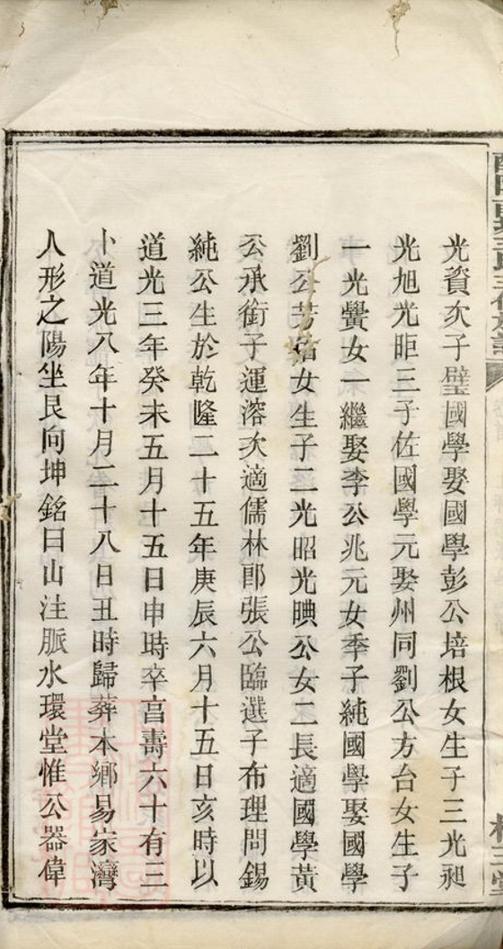 光資次子璧國學娶國學彭公培根女生子三光昶
光旭光昛三子佐國學元娶州同劉公方台女生子
一光黌女一繼娶李公兆元女季子純國學娶國學
劉公芳女生子二光昭光晪公女二長適國學黃
公承銜子運溶次適儒林郎張公臨選子布理問錫
純公生於乾隆二十五年庚辰六月十五日亥時以
道光三年癸未五月十五日申時卒享壽六十有三
卜道光八年十月二十八日丑時歸葬本鄉易家灣
人形之陽坐艮向坤銘曰山注脈水環堂惟公器偉